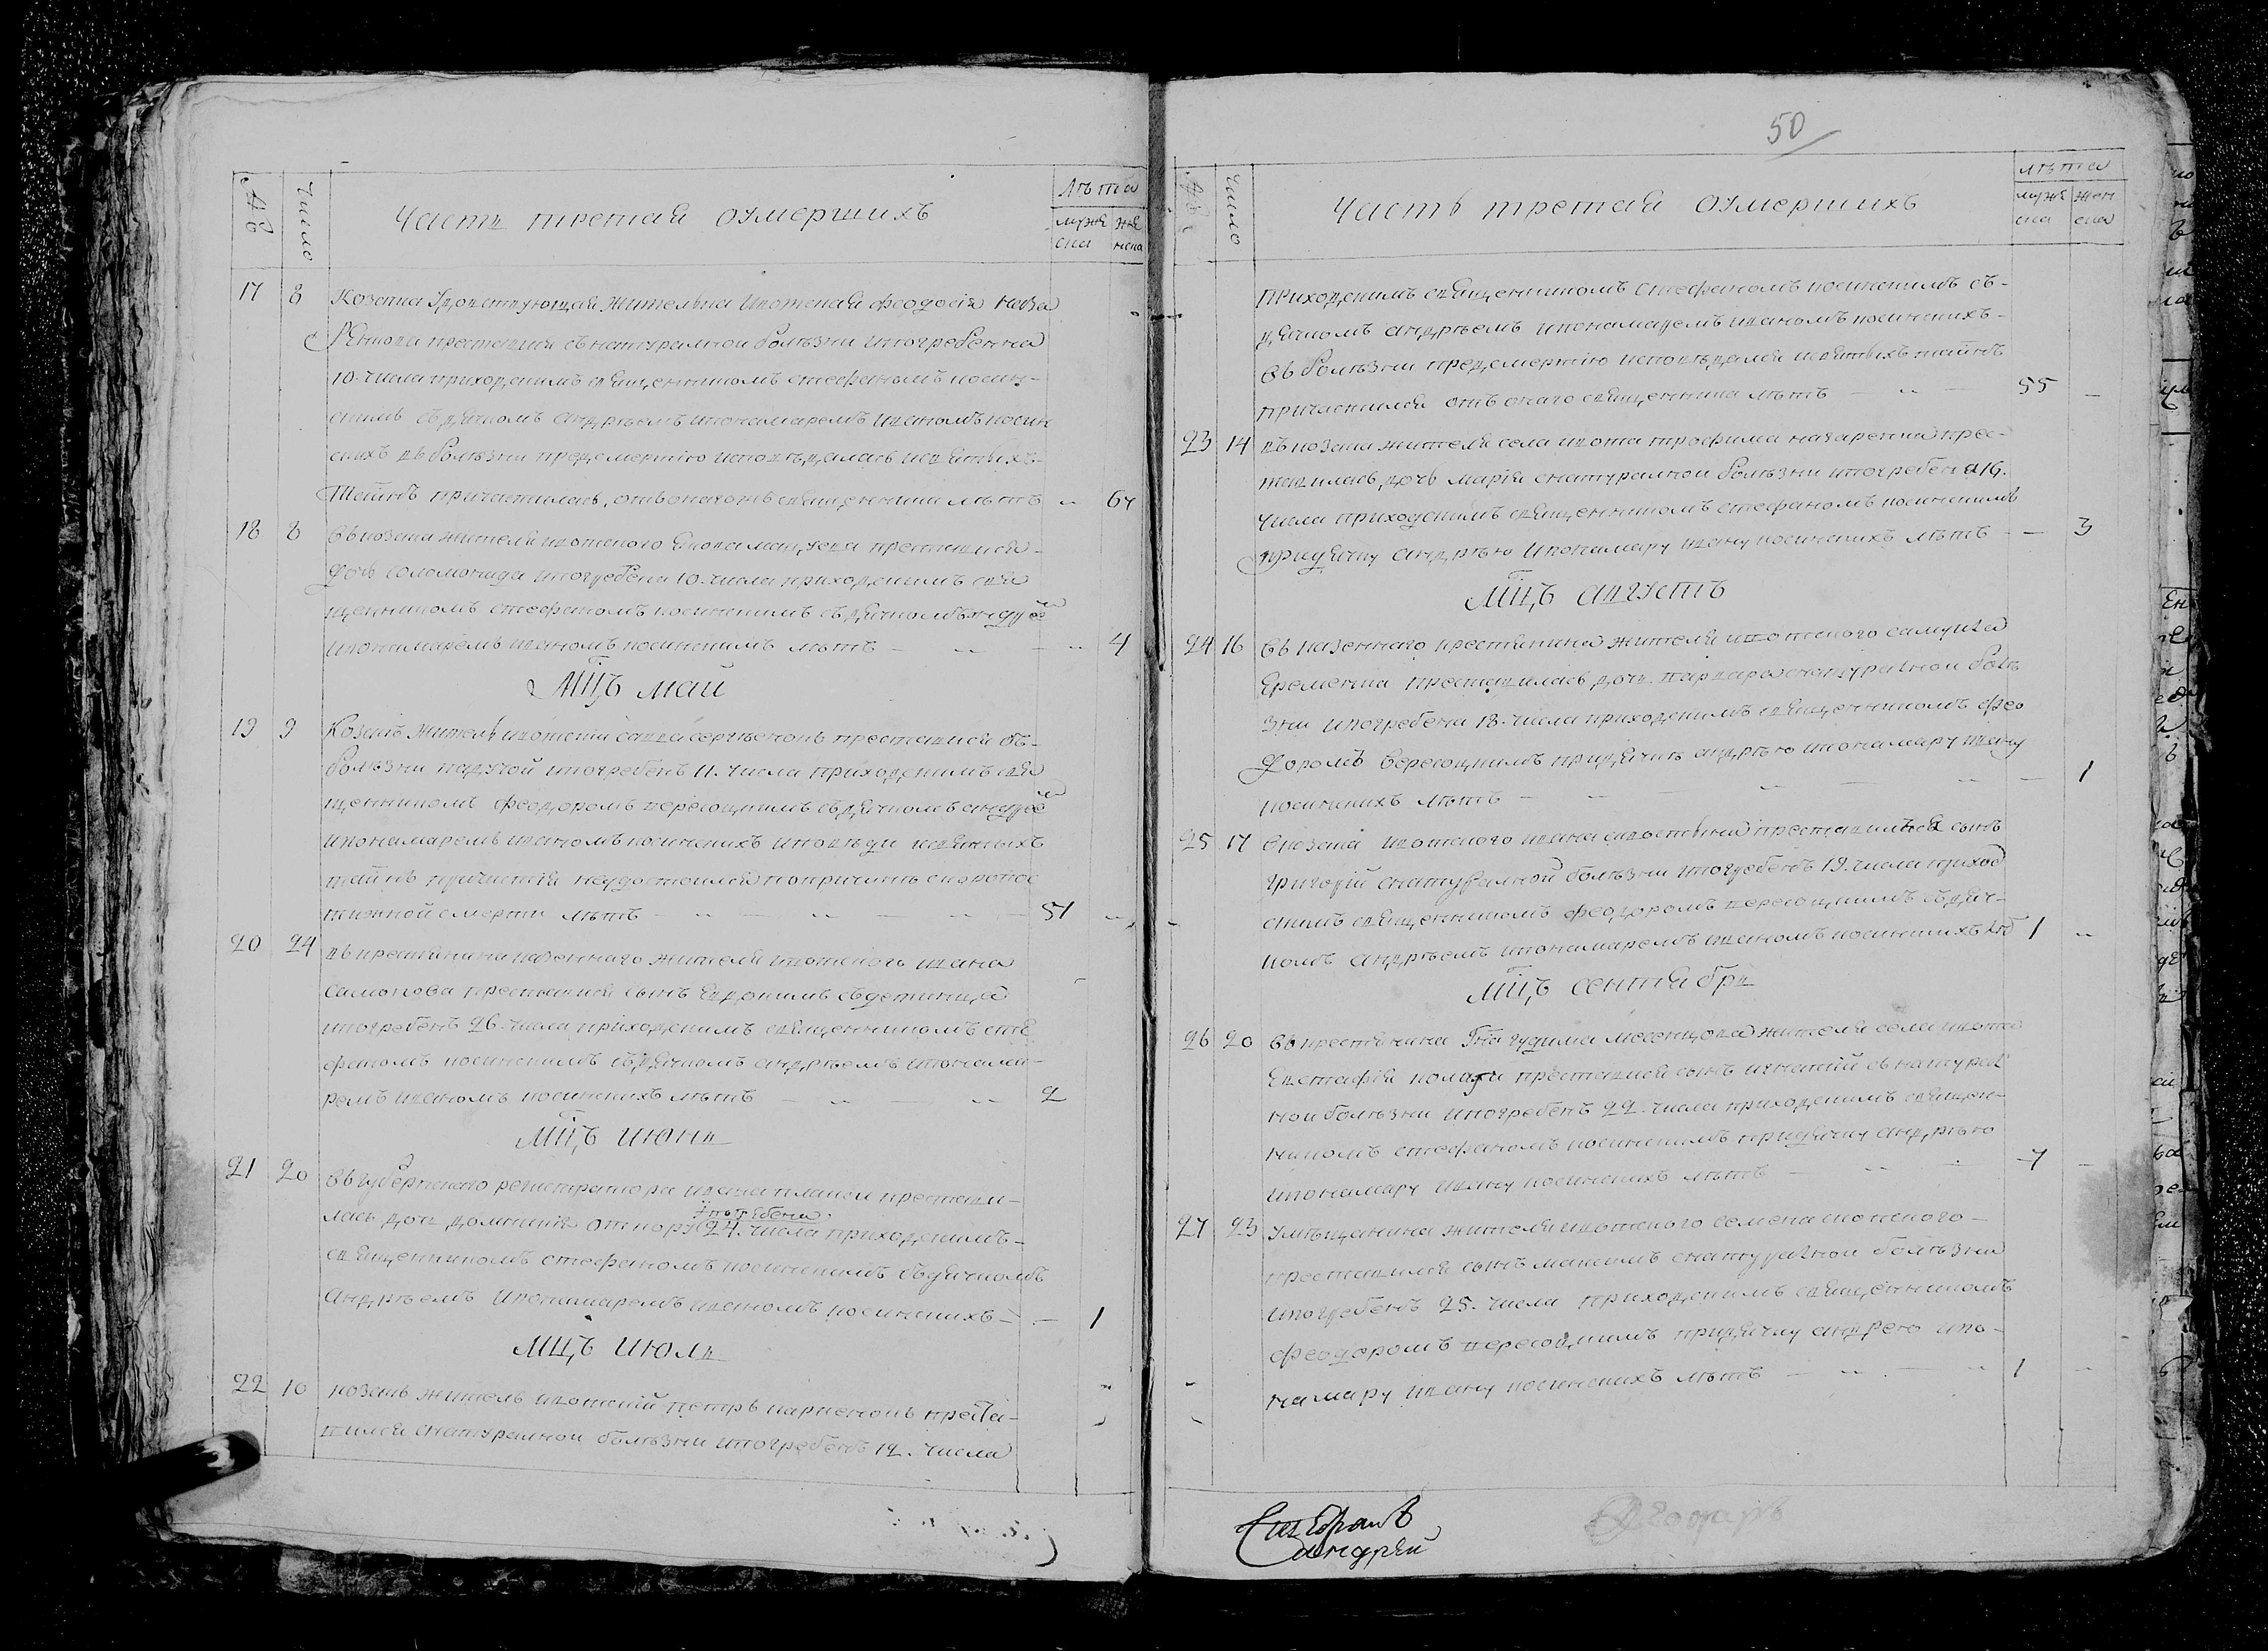 №
Число
Часть третая оумершихъ
Лѣта
мужеска
женска
17 8 Козачка удовствующая жителька ивотская феодосія наза
ренкова преставися съ натуралной болѣзни и погребенна
10. числа приходскимъ священникомъ стефаномъ косин-
скимъ съ дячкомъ андрѣемъ и пономаремъ иваномъ косин
скихъ въ болѣзни предсмертію исповѣдалась и святыхъ-
таинъ причастилась, отъ оного жъ священника лѣтъ 64
18 8 въ козака жителя ивотского преставися-
дочь соломонида и погребена 10. числа приходскимъ свя
щенникомъ стефаномъ косинскимъ съ дячкомъ андрее
и пономаремъ иваномъ косинскимъ лѣтъ 4
Мцъ май
19 9 Козакъ житель ивотскій сава сергѣенокъ преставися въ-
болѣзни падучой и погребенъ 11. числа приходскимъ свя
щенникомъ феодоромъ вересоцкимъ съ дячкомъ андрее
и пономаремъ иваномъ косинскихъ исповѣди и святыхъ
таинъ причастія неудостоился попричинѣ скоропос
тижной смерти лѣтъ 51
20 24 въ крестянина казенного жителя ивотского ивана
самохова преставися сынъ съ детинца
и погребенъ 26. числа приходскимъ священникомъ сте
фаномъ косинскимъ съ дячкомъ андрѣемъ и понома-
ремъ иваномъ косинскихъ лѣтъ 2
Мцъ июнь
21 20 въ губернского регистратора ивана престави-
лась дочь домникія от кору погребена 24. числа приходскимъ-
священникомъ стефаномъ косинскимъ съ дячкомъ
андрѣемъ и пономаремъ иваномъ косинскихъ- 1
Мцъ июль
22 10 козакъ житель ивотскій петръ карпенокъ преста-
вился снатуралной болѣзни и погребенъ 12. числа
50
№
Число
Часть третая оумершихъ
лѣта
мужеска
женска
приходскимъ священникомъ стефаномъ косинскимъ съ-
дячкомъ андрѣемъ и пономаремъ иваномъ косинскихъ-
въ болѣзни предсмертію исповѣдался и святыхъ таинъ
причастился отъ оного священника лѣтъ 55
23 14 въ козака жителя села ивота трофима назаренка прес-
тавилась дочь марія снатуралной болѣзни и погребена 16.
числа приходскимъ священникомъ стефаномъ косинскимъ
придячку андрѣю и пономару ивану косинскихъ лѣтъ 3
Мцъ августъ
24 16 въ казенного крестянина жителя ивотского самуила
Еременка преставилась дочь варвара снатуралной болѣ
зни и погребена 18. числа приходскимъ священникомъ фео
доромъ вересоцкимъ придячкѣ андрѣю и пономару ивану
косинскихъ лѣтъ 1
25 17 в козака ивотского ивана преставился сынъ
григорій снатуралной болѣзни и погребенъ 19. числа приход
скимъ священникомъ феодоромъ вересоцкимъ съ дяч-
комъ андрѣемъ и пономаремъ иваномъ косинскихъ 1
Мцъ сентябрь
26 20 въ крестянина жителя села ивота
преставися сынъ игнатій съ натурал
ной болѣзни и погребенъ 22. числа приходскимъ священ-
никомъ стефаномъ косинскимъ придячку андрѣю
и пономару ивану косинскихъ лѣтъ 7
27 23 умѣщанина жителя ивотского семена
преставился сынъ максимъ снатуралной болѣзни
и погребенъ 25. числа приходскимъ священникомъ
феодоромъ вересоцкимъ придячку андрею и по-
намару ивану косинскихъ лѣтъ 1
андрей